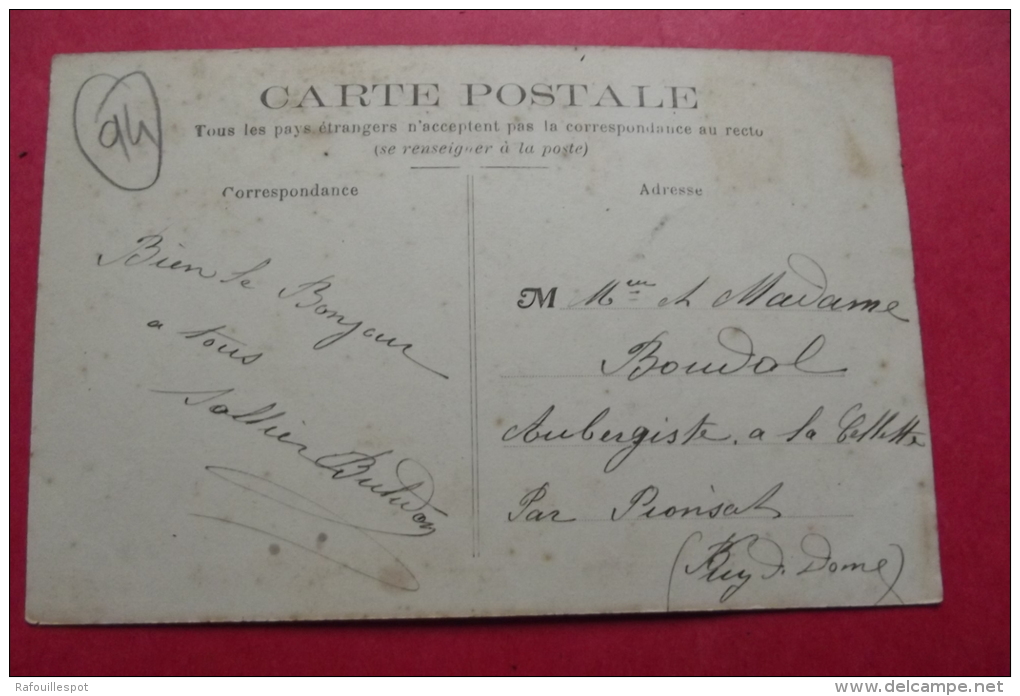 94
CARTE POSTALE
Tous les pays étrangers n'acceptent pas la correspondance au recto
(se renseigner à la poste)
Correspondance
Adresse
Bien le Bonjour
a tous
M Mr et Madame
Boudol
Aubergiste a la Cellette
Par Pionsat
(Puy d. Dome)
Rafouillespot
www.delcampe.net